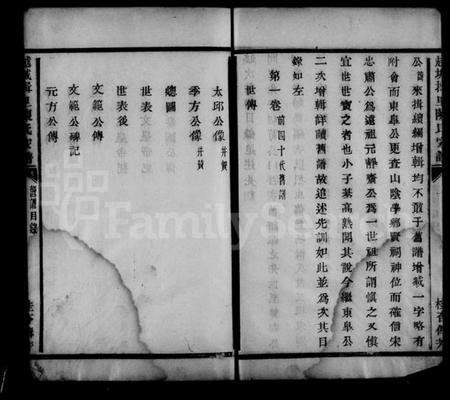 公昔來揖續編增輯均不敢于舊譜增減一字略有
附會而東皐公更查山陰學鄉賢祠神位而確信宋
忠肅公為遠祖元靜齋公為一世祖所謂慎之又慎
宜世世寶之者也小子某高熟聞其說今繼東皐公
二次增輯詳讀舊譜故追述先訓如此並為次其目
錄如左
第一卷 前四十代舊譜
世傳
太邱公像 并贊
季方公像 并贊
總圖
世表後
文範公碑記
文範公傳
元方公傳
舊譜目錄
FamilySearch